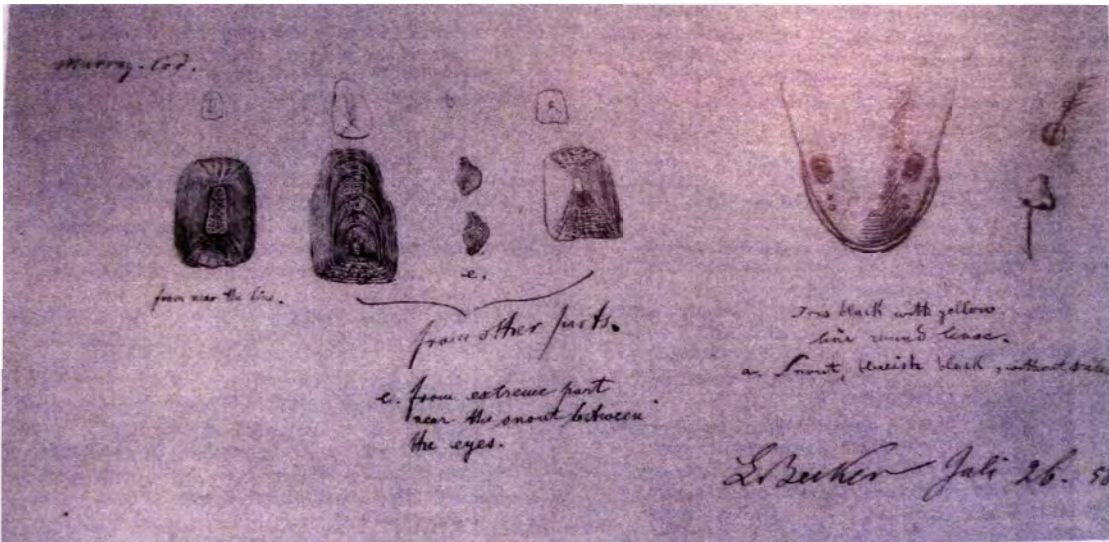 Murray-Cod.
from near the line.
e.
from other parts.
e. from extreme part
near the snout between
the eyes.
Iris black with yellow
line round lense.
a. Snout, blueish black, without scales
L Becker Juli 26. 58